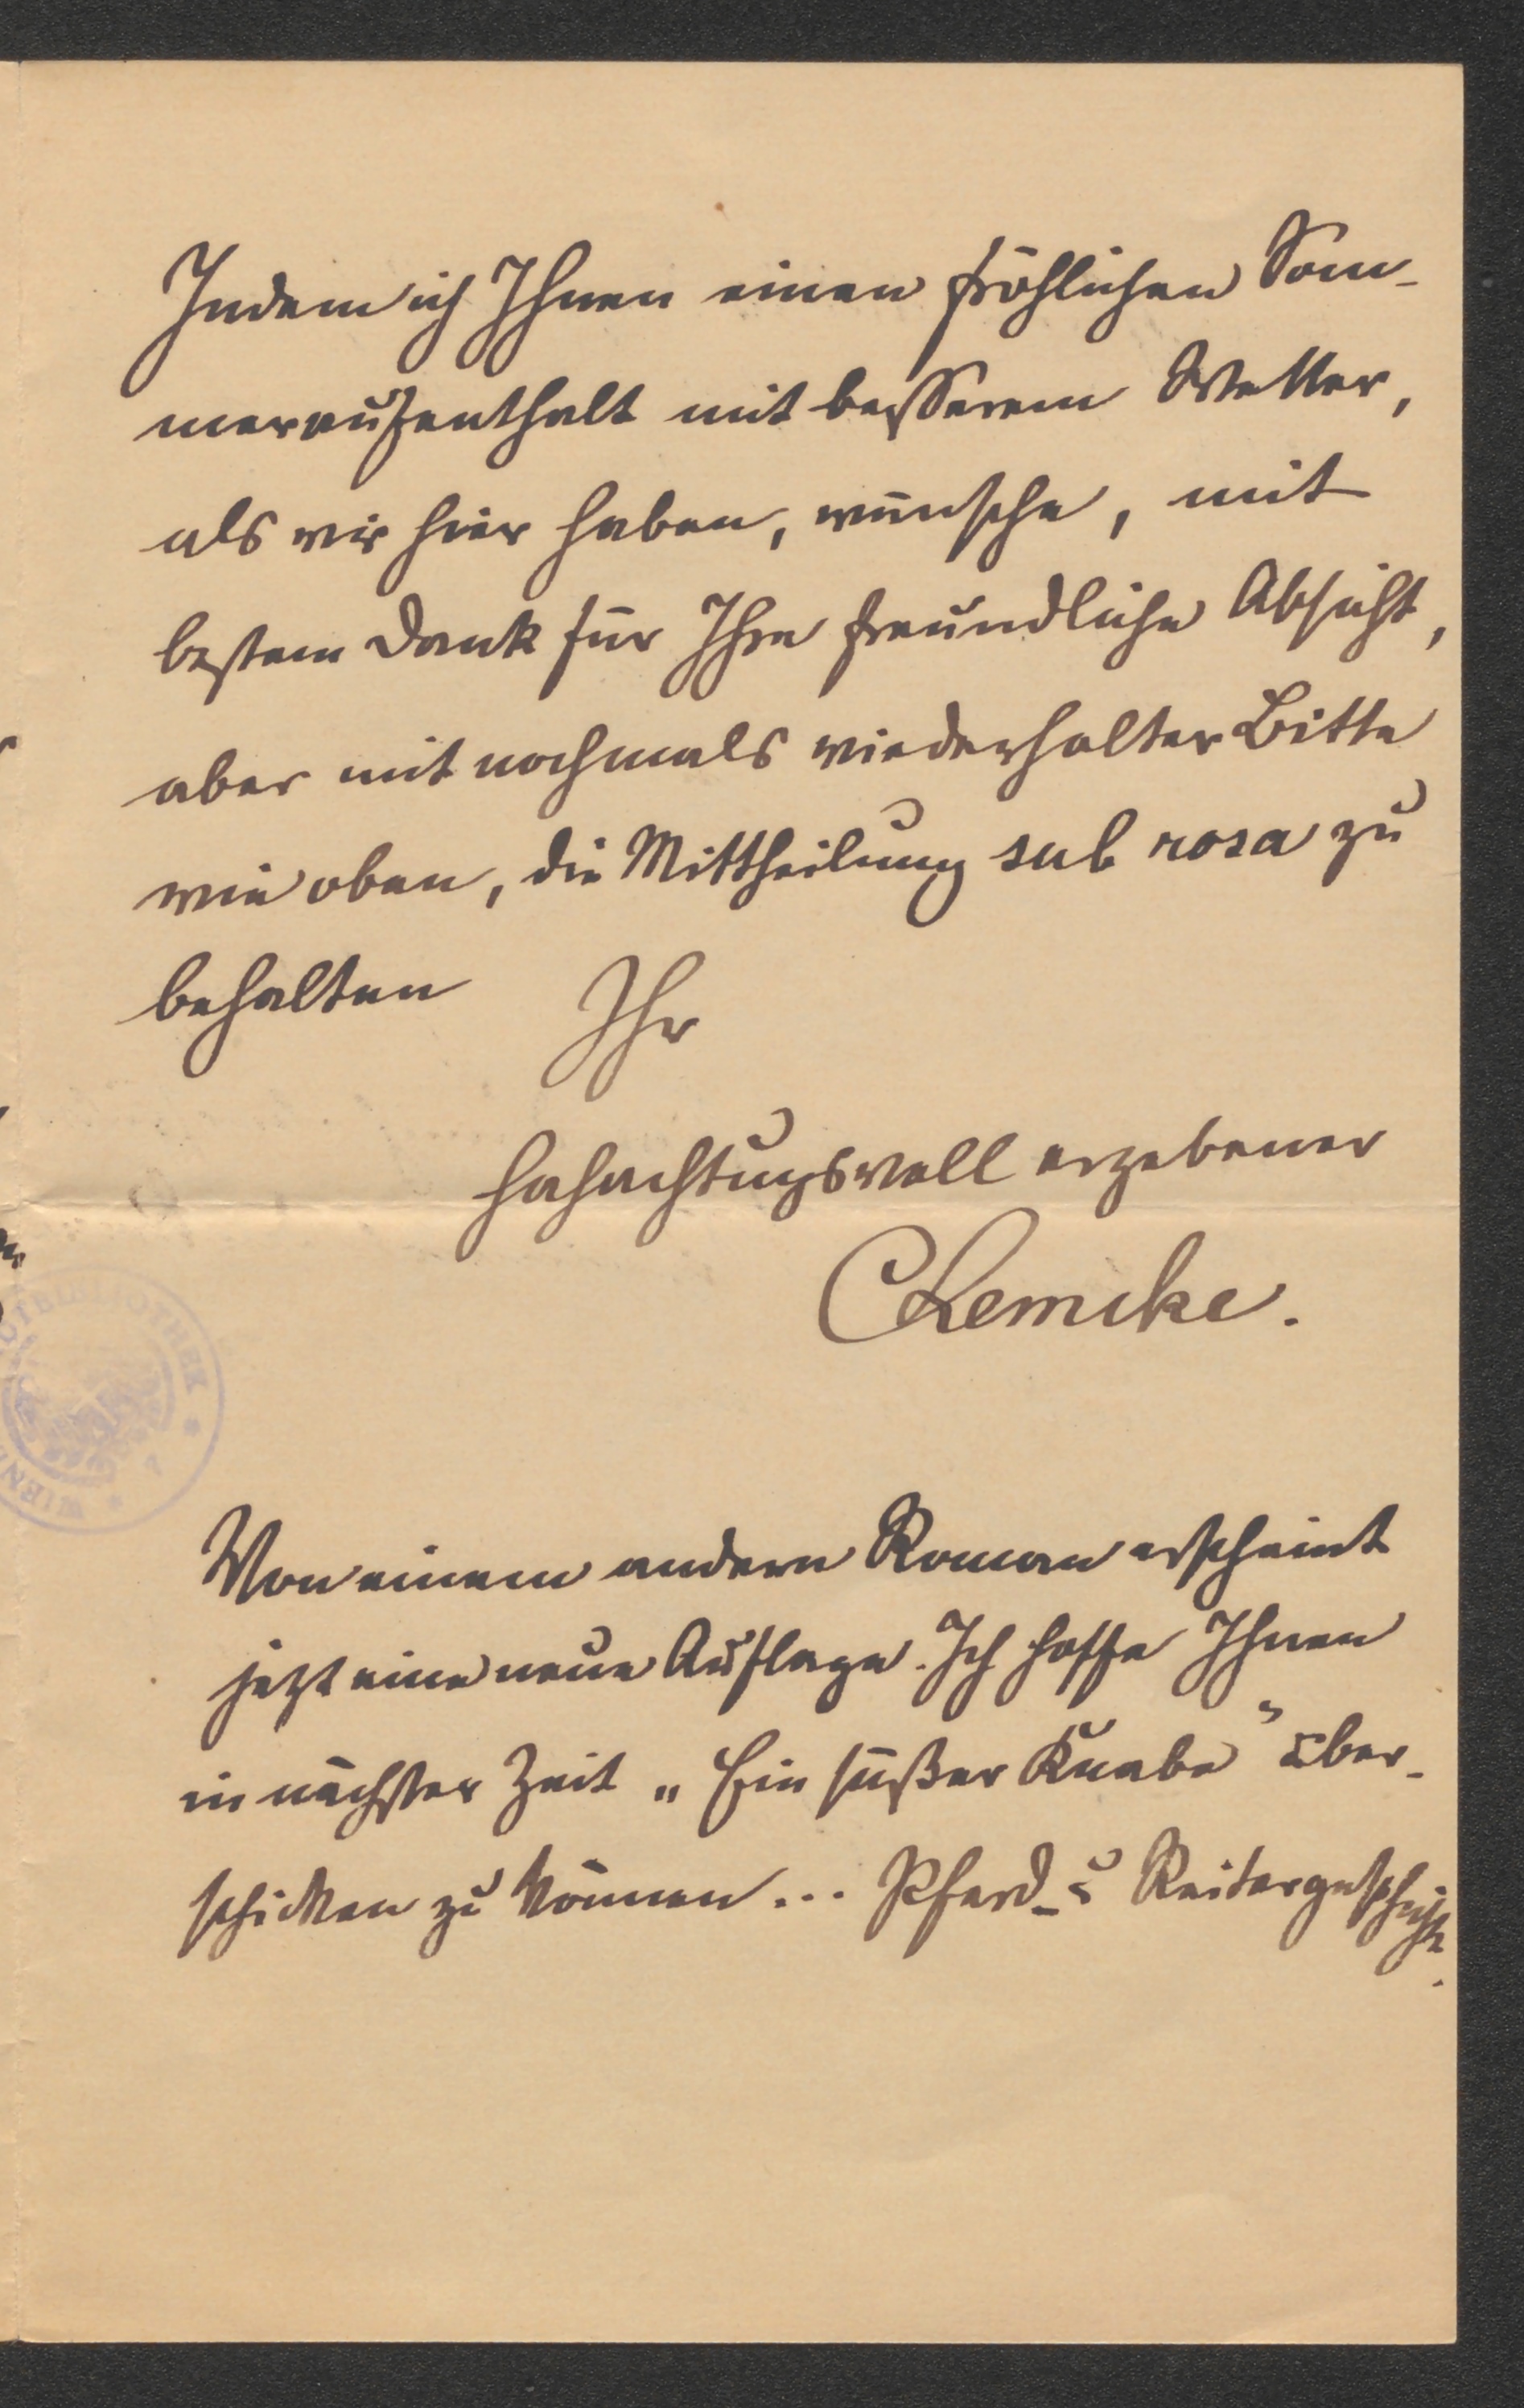 Indem ich Ihnen einen fröhlichen Som-
meraufenthalt mit besserem Wetter,
als wir hier haben, wünsche, mit
bestem Dank für Ihre freundliche Absicht,
aber mit nochmals wiederholter Bitte
wie oben, die Mittheilung sub rosa zu
behalten Ihr
hochachtungsvoll ergebener
CLemcke.
Von einem andern Roman erscheint
jetzt eine neue Auflage. Ich hoffe Ihnen
in nächster Zeit „Ein süßer Knabe" über-
schicken zu können... Pferd- u Reitergeschichte.
BIBLIOTHEK
WIEN